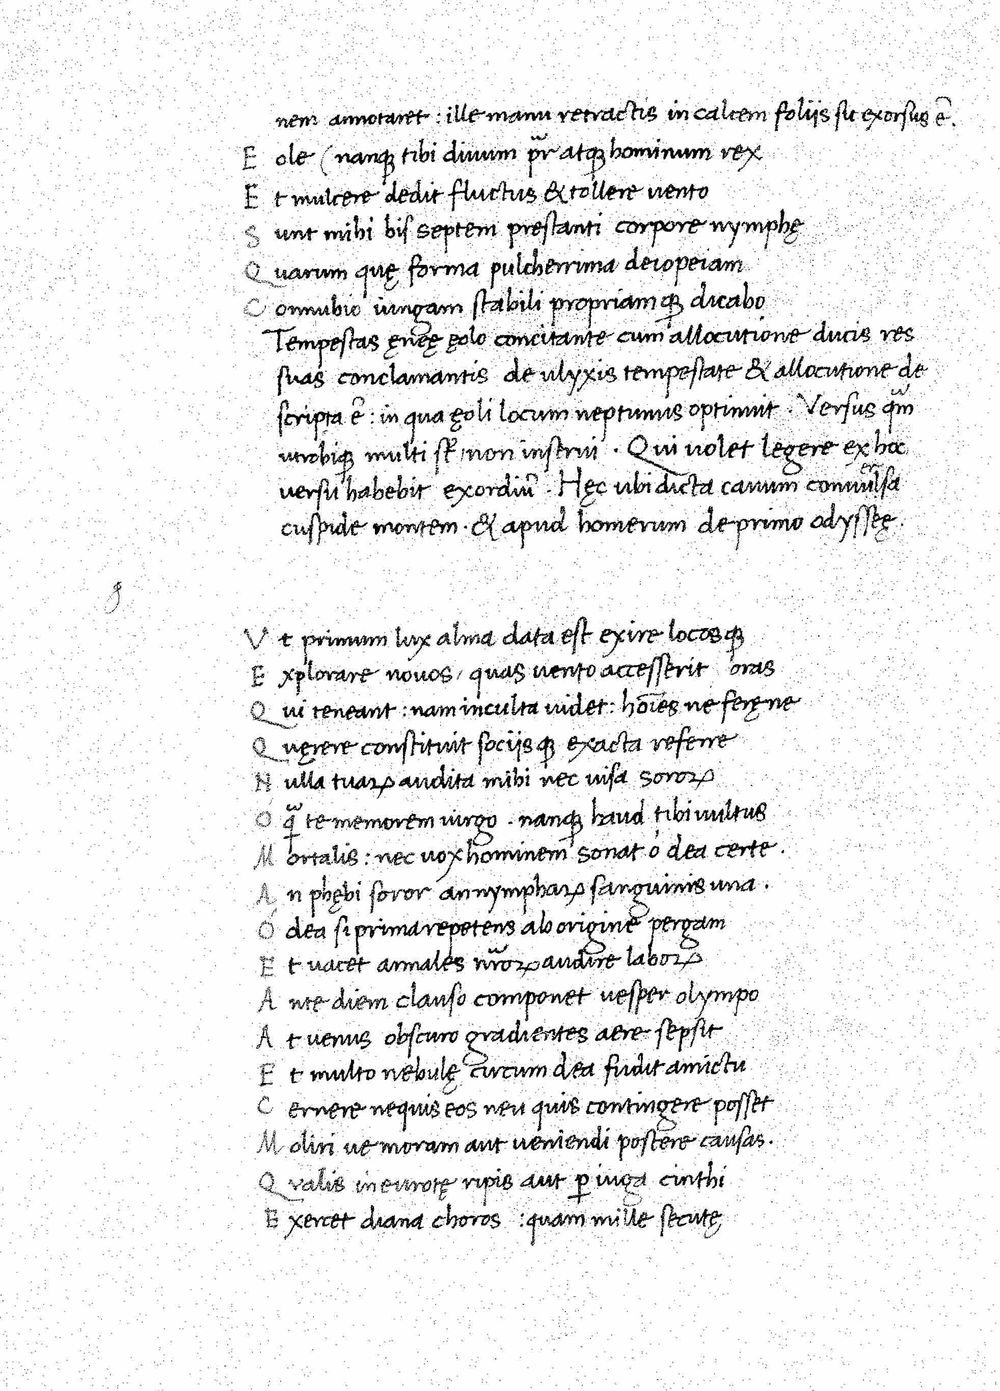 nem annotaret : ille manu retractis in calcem foliis sic exorsus ē.
E ole ( nanq; tibi diuum pr̄ atq; hominum rex
E t mulcere dedit fluctus & tollere uento
S unt mihi bis septem prestanti corpore nymphę
Q uarum quę forma pulcherrima deiopeiam
C onnubio iungam stabili propriamq; dicabo
Tempestas ęneę ęolo concitante cum allocutione ducis res
suas conclamantis de ulyxis tempestate & allocutione de
scripta ē : in qua ęoli locum neptunus optinuit . Versus qm̄
utrobiq; multi st̄ , non inserui . Qui uolet legere ex hoc
uersu habebit exordiū . Hęc ubi dicta cauum conuulsa
cuspide montem . & apud homerum de primo odysseę .
V t primum lux alma data est exire locosq;
E xplorare nouos , quas uento accesserit oras
Q ui teneant : nam inculta uidet : hoīes ne feręne
Q uęrere constituit sociisq; exacta referre
N ulla tuaꝝ audita mihi nec uisa sororꝝ
O q̄ te memorem uirgo . nanq; haud tibi uultus
M ortalis : nec uox hominem sonat o dea certe .
A n phębi soror an nymphaꝝ sanguinis una .
O dea si prima repetens ab origine pergam
E t uacet annales nr̄oꝝ audire laboꝝ
A nte diem clauso componet uesper olympo
A t uenus obscuro gradientes aere sepsit
E t multo nebulę circum dea fudit amictu
C ernere nequis eos neu quis contingere posset
M oliri ue moram aut ueniendi poscere causas .
Q ualis in eurotę ripis aut ꝑ iuga cinthi
E xercet diana choros : quam mille secutę